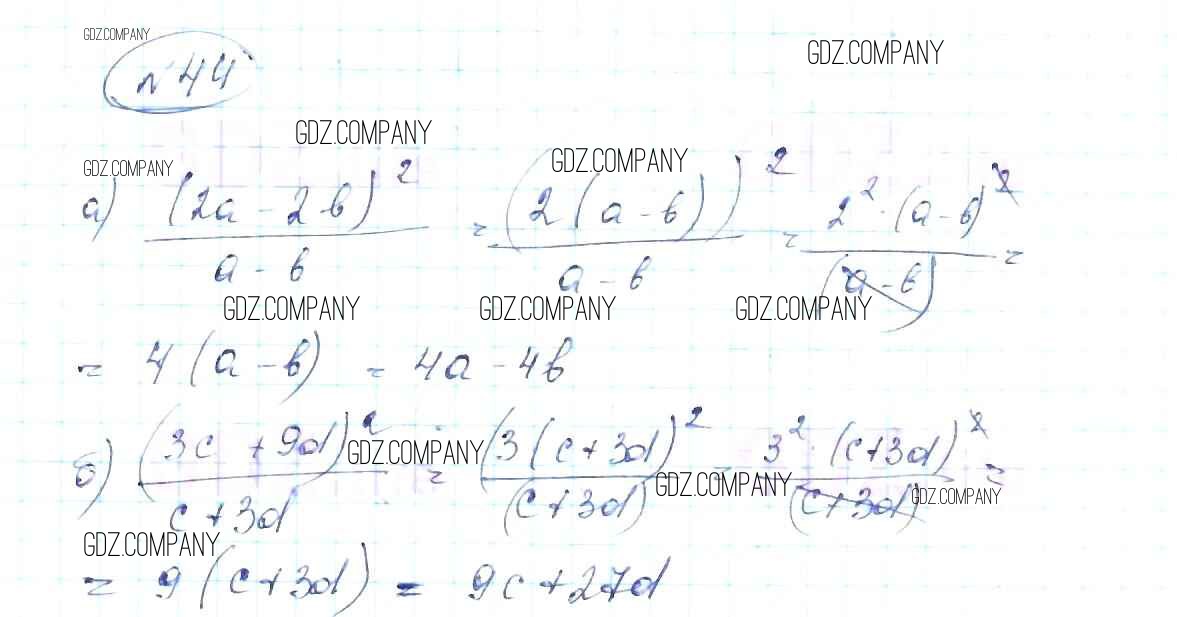 GDZ.COMPANY
№ 44
GDZ.COMPANY
GDZ.COMPANY
GDZ.COMPANY
GDZ.COMPANY
а) (2a - 2b)² / (a - b) = (2(a - b))² / (a - b) = 2² · (a - b)² / (a - b) =
GDZ.COMPANY GDZ.COMPANY GDZ.COMPANY
= 4(a - b) = 4a - 4b
б) (3c + 9d)² / (c + 3d) = (3(c + 3d)² / (c + 3d) = 3² · (c + 3d)² / (c + 3d) =
GDZ.COMPANY GDZ.COMPANY GDZ.COMPANY
GDZ.COMPANY
= 9(c + 3d) = 9c + 27d